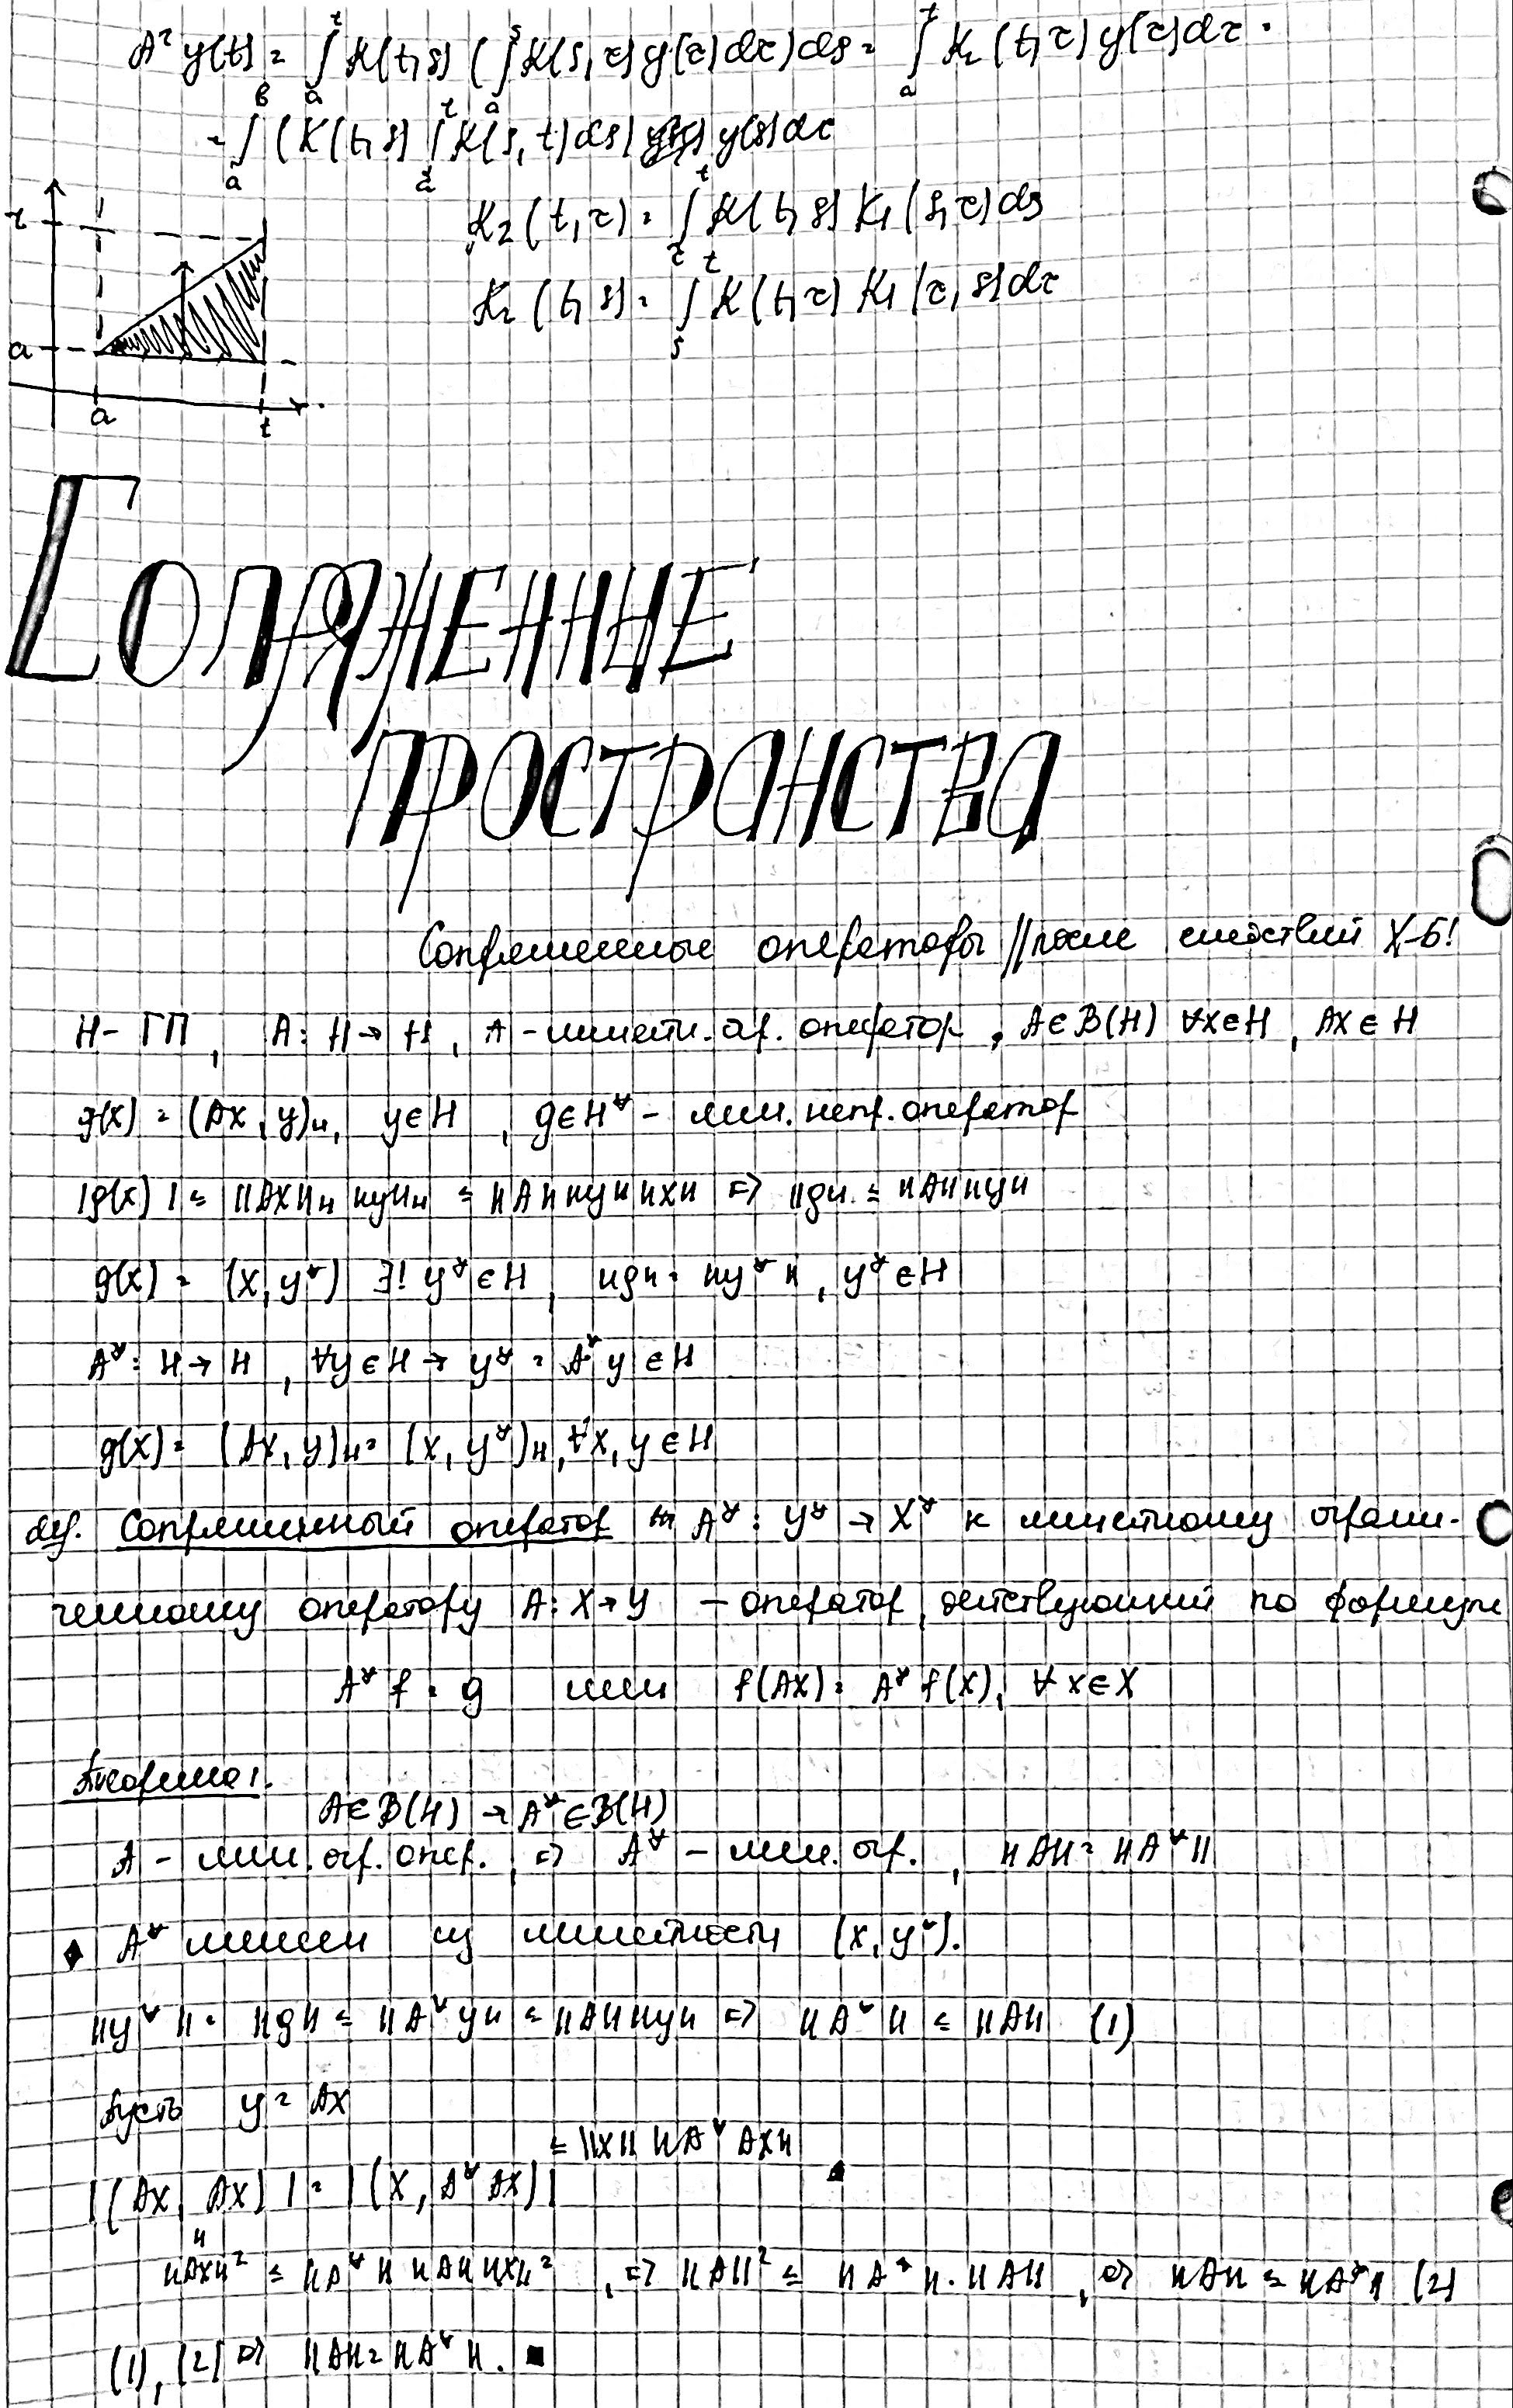 A² y(t) = ∫ₐᵗ K(t,s) (∫ₐˢ K(s,τ) y(τ)dτ)ds = ∫ₐᵗ K₂(t,τ) y(τ)dτ =
= ∫ₐᵇ (K(t,s) ∫ₐᵗ K(s,t)ds) y(s)dτ
K₂(t,τ) = ∫_τ^t K(t,s) K₁(s,τ)ds
K₂(t,s) = ∫ₛᵗ K(t,τ) K₁(τ,s)dτ
τ
a
a t
Сопряженные
пространства
Сопряженные операторы // после следствий Х-Б!
H - ГП, A: H → H, A - линейн. огр. оператор, A ∈ B(H) ∀x∈H, Ax ∈ H
g(x) = (Ax, y)_H, y∈H, g∈H* - лин. непр. оператор
|g(x)| ≤ ||Ax||_H ||y||_H ≤ ||A|| ||y|| ||x|| ⇒ ||g|| ≤ ||A|| ||y||
g(x) = (x, y*) ∃! y* ∈ H, ||g|| = ||y*||, y* ∈ H
A*: H → H, ∀y ∈ H → y* = A* y ∈ H
g(x) = (Ax, y)_H = (x, y*)_H, ∀x, y ∈ H
def. Сопряженный оператор A*: Y* → X* к линейному ограни-
ченному оператору A: X → Y - оператор, действующий по формуле
A* f = g или f(Ax) = A* f(x), ∀ x ∈ X
Теорема 1.
A ∈ B(H) → A* ∈ B(H)
A - лин. огр. опер. ⇒ A* - лин. огр., ||A|| = ||A*||
♦ A* линеен из линейности (x, y*).
||y*|| = ||g|| ≤ ||A* y|| ≤ ||A|| ||y|| ⇒ ||A*|| ≤ ||A|| (1)
Пусть y = Ax
|(Ax, Ax)| = |(x, A* Ax)| ≤ ||x|| ||A* Ax||
||
||Ax||² ≤ ||A*|| ||A|| ||x||², ⇒ ||A||² ≤ ||A*|| · ||A||, ⇒ ||A|| ≤ ||A*|| (2)
(1), (2) ⇒ ||A|| = ||A*||. ■